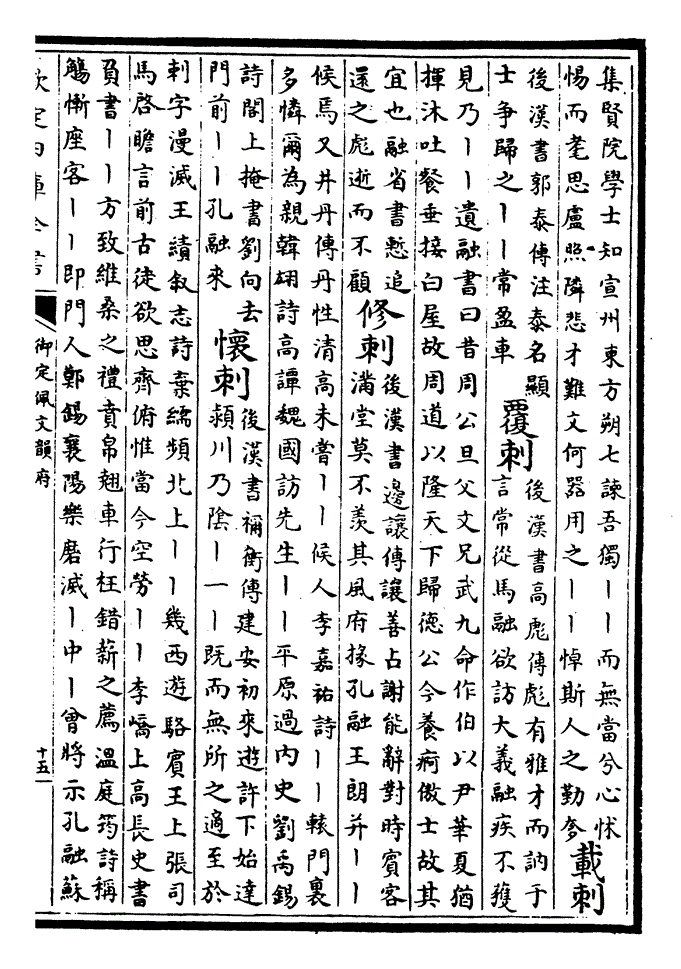 集賢院學士知宣州東方朔七諫吾獨丨丨而無當兮心怵
惕而耄思盧照隣悲才難文何器用之丨丨悼斯人之勤叅
載刺
後漢書郭泰傳注泰名顯
士爭歸之丨丨常盈車
覆刺
後漢書高彪傳彪有雅才而訥于
言常從馬融欲訪大義融疾不獲
見乃丨丨遺融書曰昔周公旦父文兄武九命作伯以尹華夏猶
揮沐吐餐垂接白屋故周道以隆天下歸德公今養痾傲士故其
宜也融省書慙追
還之彪逝而不顧
修刺
後漢書邊讓傳讓善占謝能辭對時賓客
滿堂莫不羨其風府掾孔融王朗并丨丨
候焉又井丹傳丹性清高未嘗丨丨候人李嘉祐詩丨丨轅門裏
多憐爾為親韓翃詩高譚魏國訪先生丨丨平原過内史劉禹錫
詩閣上掩書劉向去
門前丨丨孔融來
懷刺
後漢書禰衡傳建安初來遊許下始達
潁川乃隂丨一丨既而無所之適至於
刺字漫滅王績叙志詩棄繻頻北上丨丨幾西遊駱賓王上張司
馬啓瞻言前古徒欲思齊俯惟當今空勞丨丨李嶠上高長史書
負書丨丨方致維桑之禮賁帛翹車行枉錯薪之薦温庭筠詩稱
觴慚座客丨丨即門人鄭錫襄陽樂磨滅丨中丨曾將示孔融蘇
欽定四庫全書
御定佩文韻府
十五